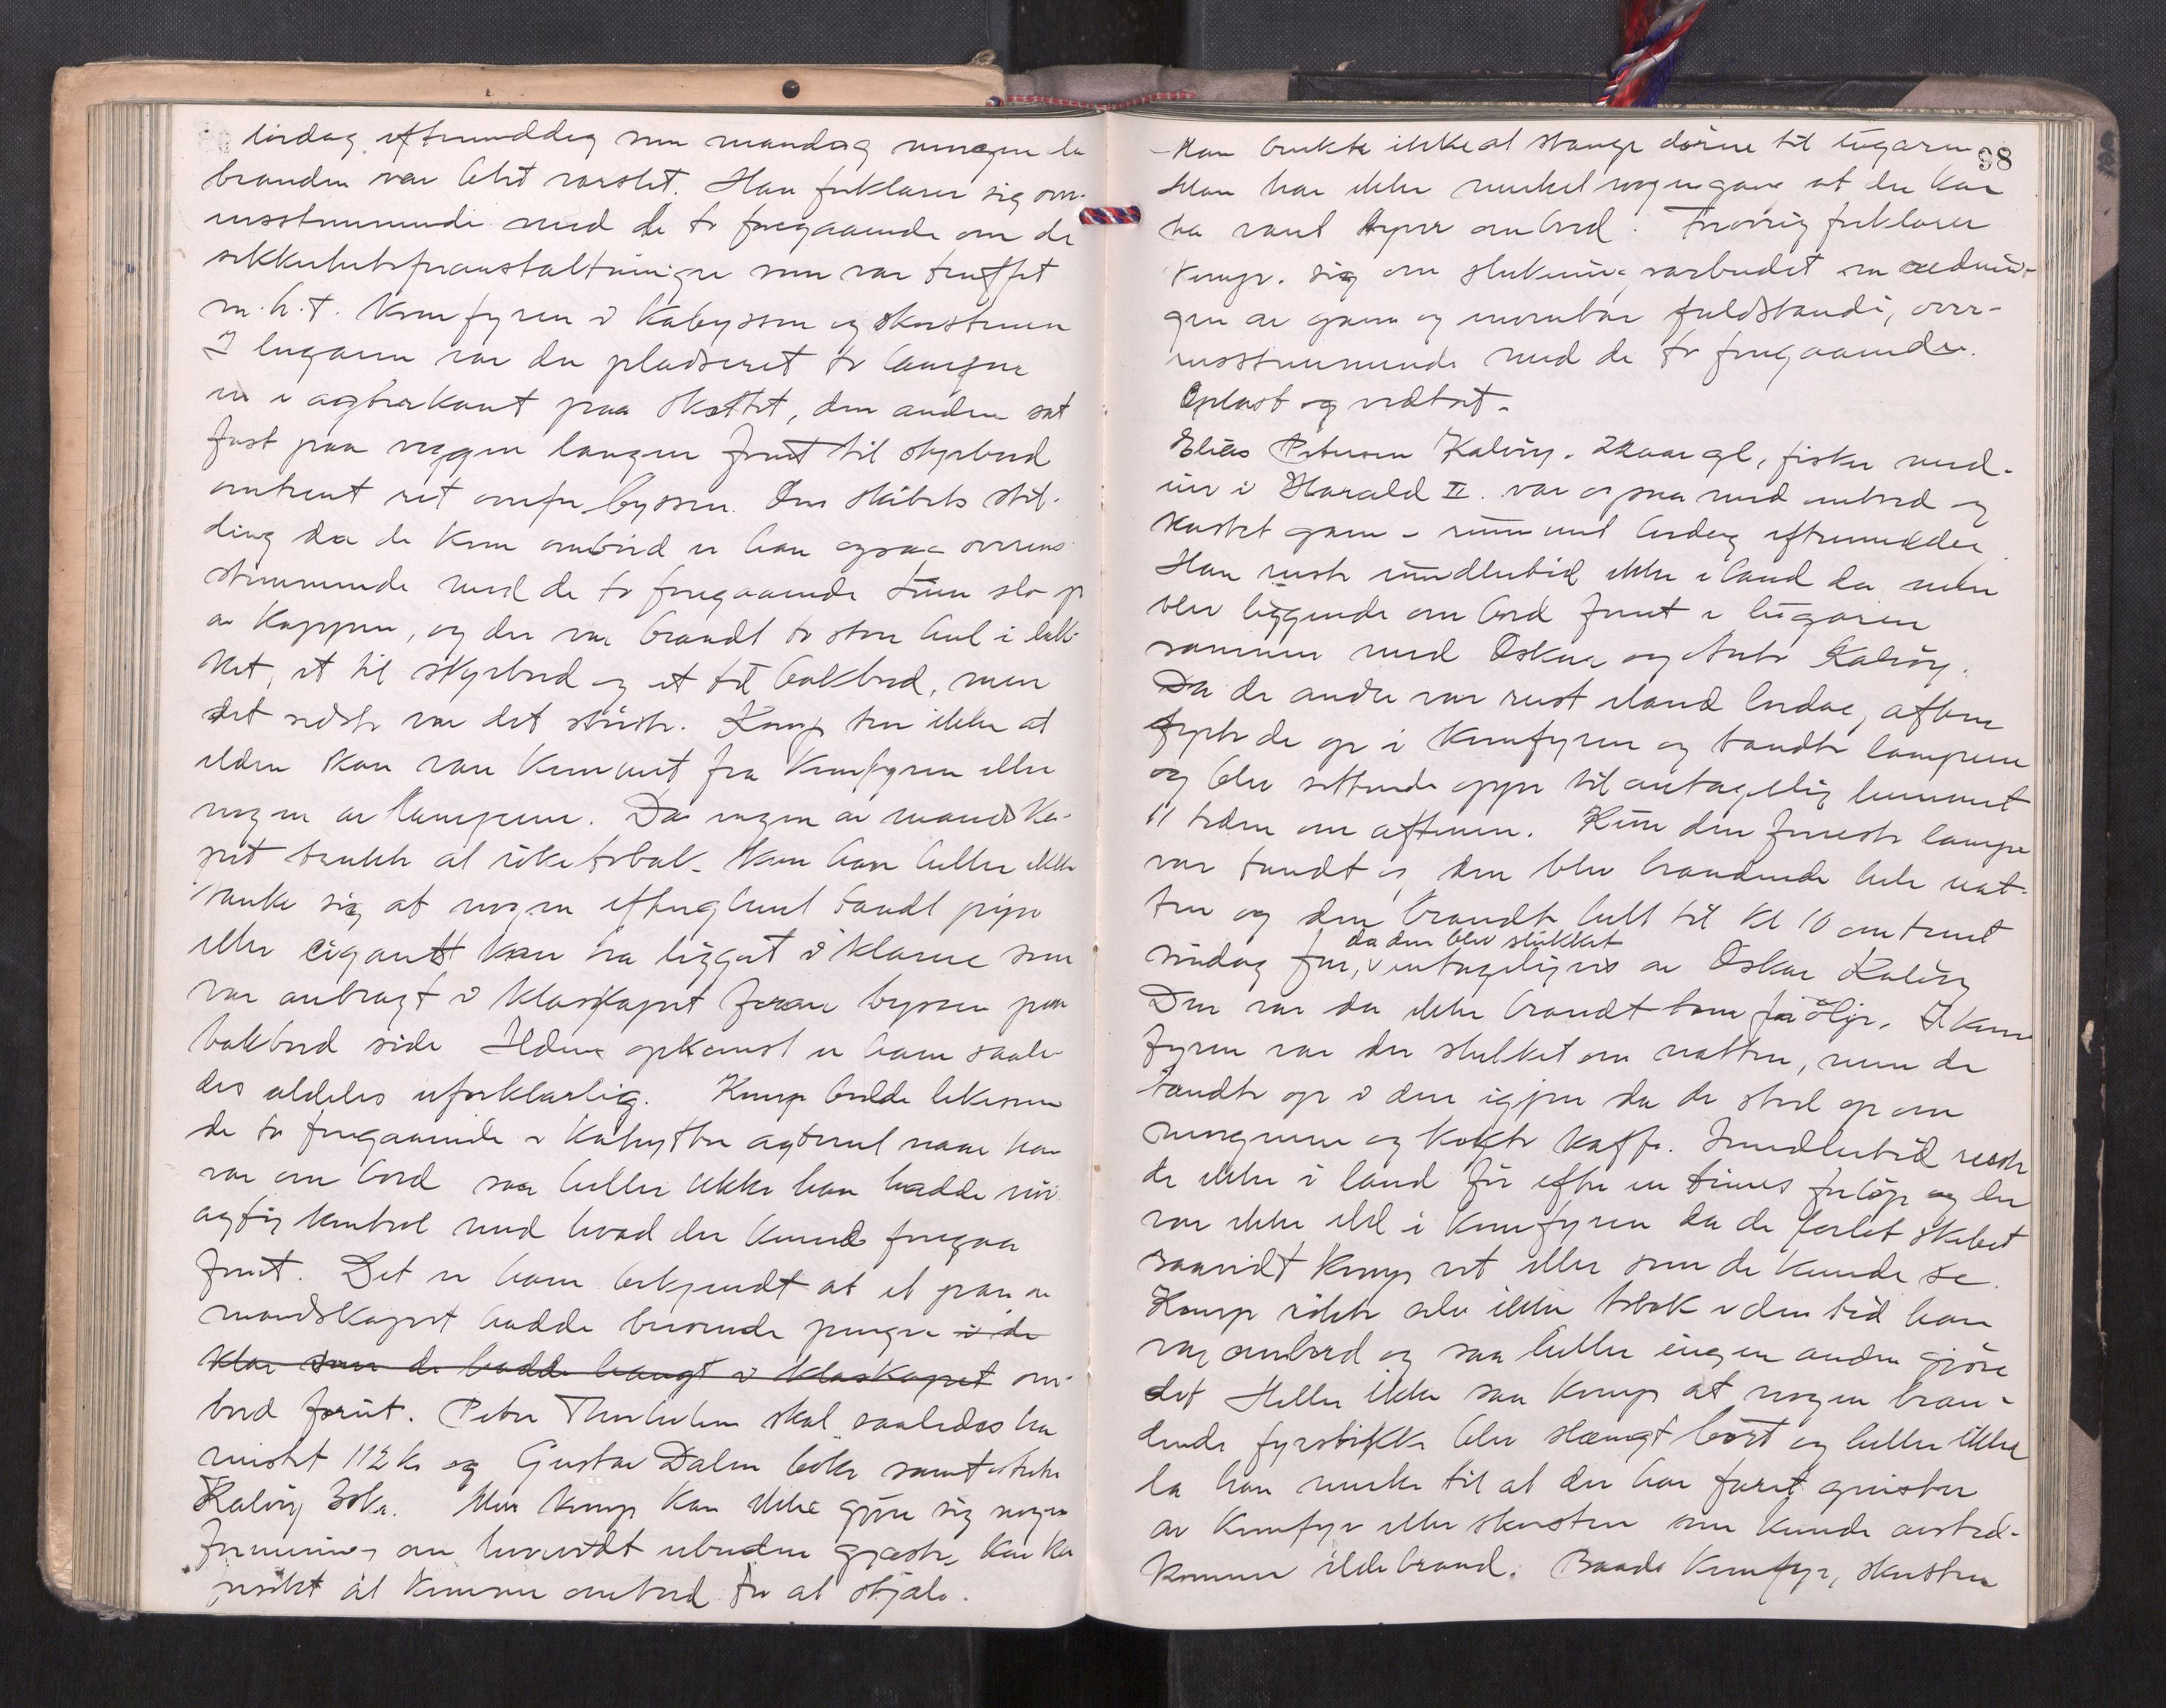 lørdag eftermiddag som mandag morgen da
branden var blit varslet. Han forklarer sig over-
ensstemmende med de to foregaaende om de
sikkerhetsforanstaltninger som var truffet
m.h.t. komfyren i kabyssen og skorstenen
I lugaren var der pladseret to lamper
en i agterkant paa skottet, den anden sat
fast paa væggen længer forut til styrbord
omtrent ret overfor byssen. Om skibets stil-
ling da de kom ombord er han ogsaa overens
stemmende med de to foregaaende
av kappen, og der var brændt to store hul i dæk-
ket, et til styrbord og et til bakbord, men
det sidste var det største. Komp tror ikke at
ilden kan være kommet fra komfyren eller
nogen av lamperne. Da ingen av mandska-
pet brukte at røke tobak kan han heller ikke
tænke sig at nogen efterglemt tændt pipe
eller cigarett kan ha ligget i klærne som
var anbragt i klæskapet foran byssen paa
bakbord side Ildens opkomst er ham saale-
des aldeles uforklarlig. Komp holdt likesom
de to foregaaende i kahytten agterut naar han
var om bord saa heller ikke han hadde nøi
agtig kontrol med hvad der kunde foregaa
forut. Det er ham bekjendt at et par av
mandskapet hadde beroende penger i de
klær som de hadde hængt i klæskapet om-
bord forut. Peter Thorholm skal saaledes ha
mistet 112 kr og Gustav Dalen 60kr samt
Kalvøy 30kr. Men komp kan ikke gjøre sig nogen
formening om hvorvidt ubudne gjæster kan ha
søkt at komme ombord for at stjæle.
98
Man brukte ikke at stænge dørene til lugaren
Man har ikke merket nogengang at der har
ha været tyver ombord. Forøvrig forklarer
Komp. sig om slukningsarbeidet om
av garn og inventar fuldstændi, over-
ensstemmende med de to foregaaende.
Oplæst og vedtat.
Elias Petersen Kalvøy. 22 aar gl, fisker med-
eier i Harald II. var ogsaa med ombord og
kastet garn i rummet lørdag eftermiddag
Han reiste imidlertid ikke i land da men
blev liggende om bord forut i lugaren
sammen med Oskar og Anton Kalvøy.
Da de andre var reist iland lørdag aften
fyrte de op i komfyren og tændte lampene
og blev sittende oppe til antagelig henimot
11 tiden om aftenen. Kun den forreste lampe
var tændt og den blev brændende hele nat-
ten og den brændte helt til kl 10 omtrent
da den blev slukket
søndag for, antageligvis av Oskar Kalvøy
Den var da ikke brændt tom for olje. I kom
fyren var der slukket om natten, men de
tændte op i den igjen da de stod op om
morgenen og kokte kaffe. Imidlertid reiste
de ikke i land før efter en times forløp og der
var ikke ild i komfyren da de forlot skibet
saavidt komp vet eller som de kunde se.
Komp røkte selv ikke tobak i den tid han
var ombord og saa heller ingen anden gjøre
det Heller ikke saa komp at nogen bræn-
dende fyrstikke blev slængt bort og heller ikke
la han merke til at der har faret gnister
av komfyr eller skorsten som kunde avsted-
komme ildebrand. Baade komfyr, skorsten